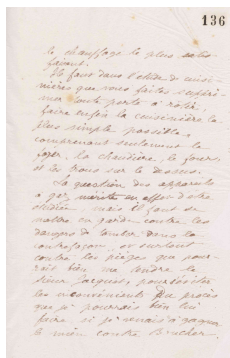 136
le chauffage le plus satis-
faisant.
Il faut dans l'étude de cuisi-
nières que vous faites suppri-
mer toute porte à rôtir,
faire enfin la cuisinière la
plus simple possible,
comprenant seulement le
foyer, la chaudière, le four,
et les trous sur le dessus.
La question des appareils
à gaz mérite en effet d'être
étudiée, mais il faut se
mettre en garde contre les
dangers de tomber dans la
contrefaçon, ou surtout
contre les pièges que pour-
rait bien me tendre le
sieur Jacquet, pour éviter
les inconvénients du procès
que je pourrais bien lui
faire si je venais à gagner
le mien contre Brucher.